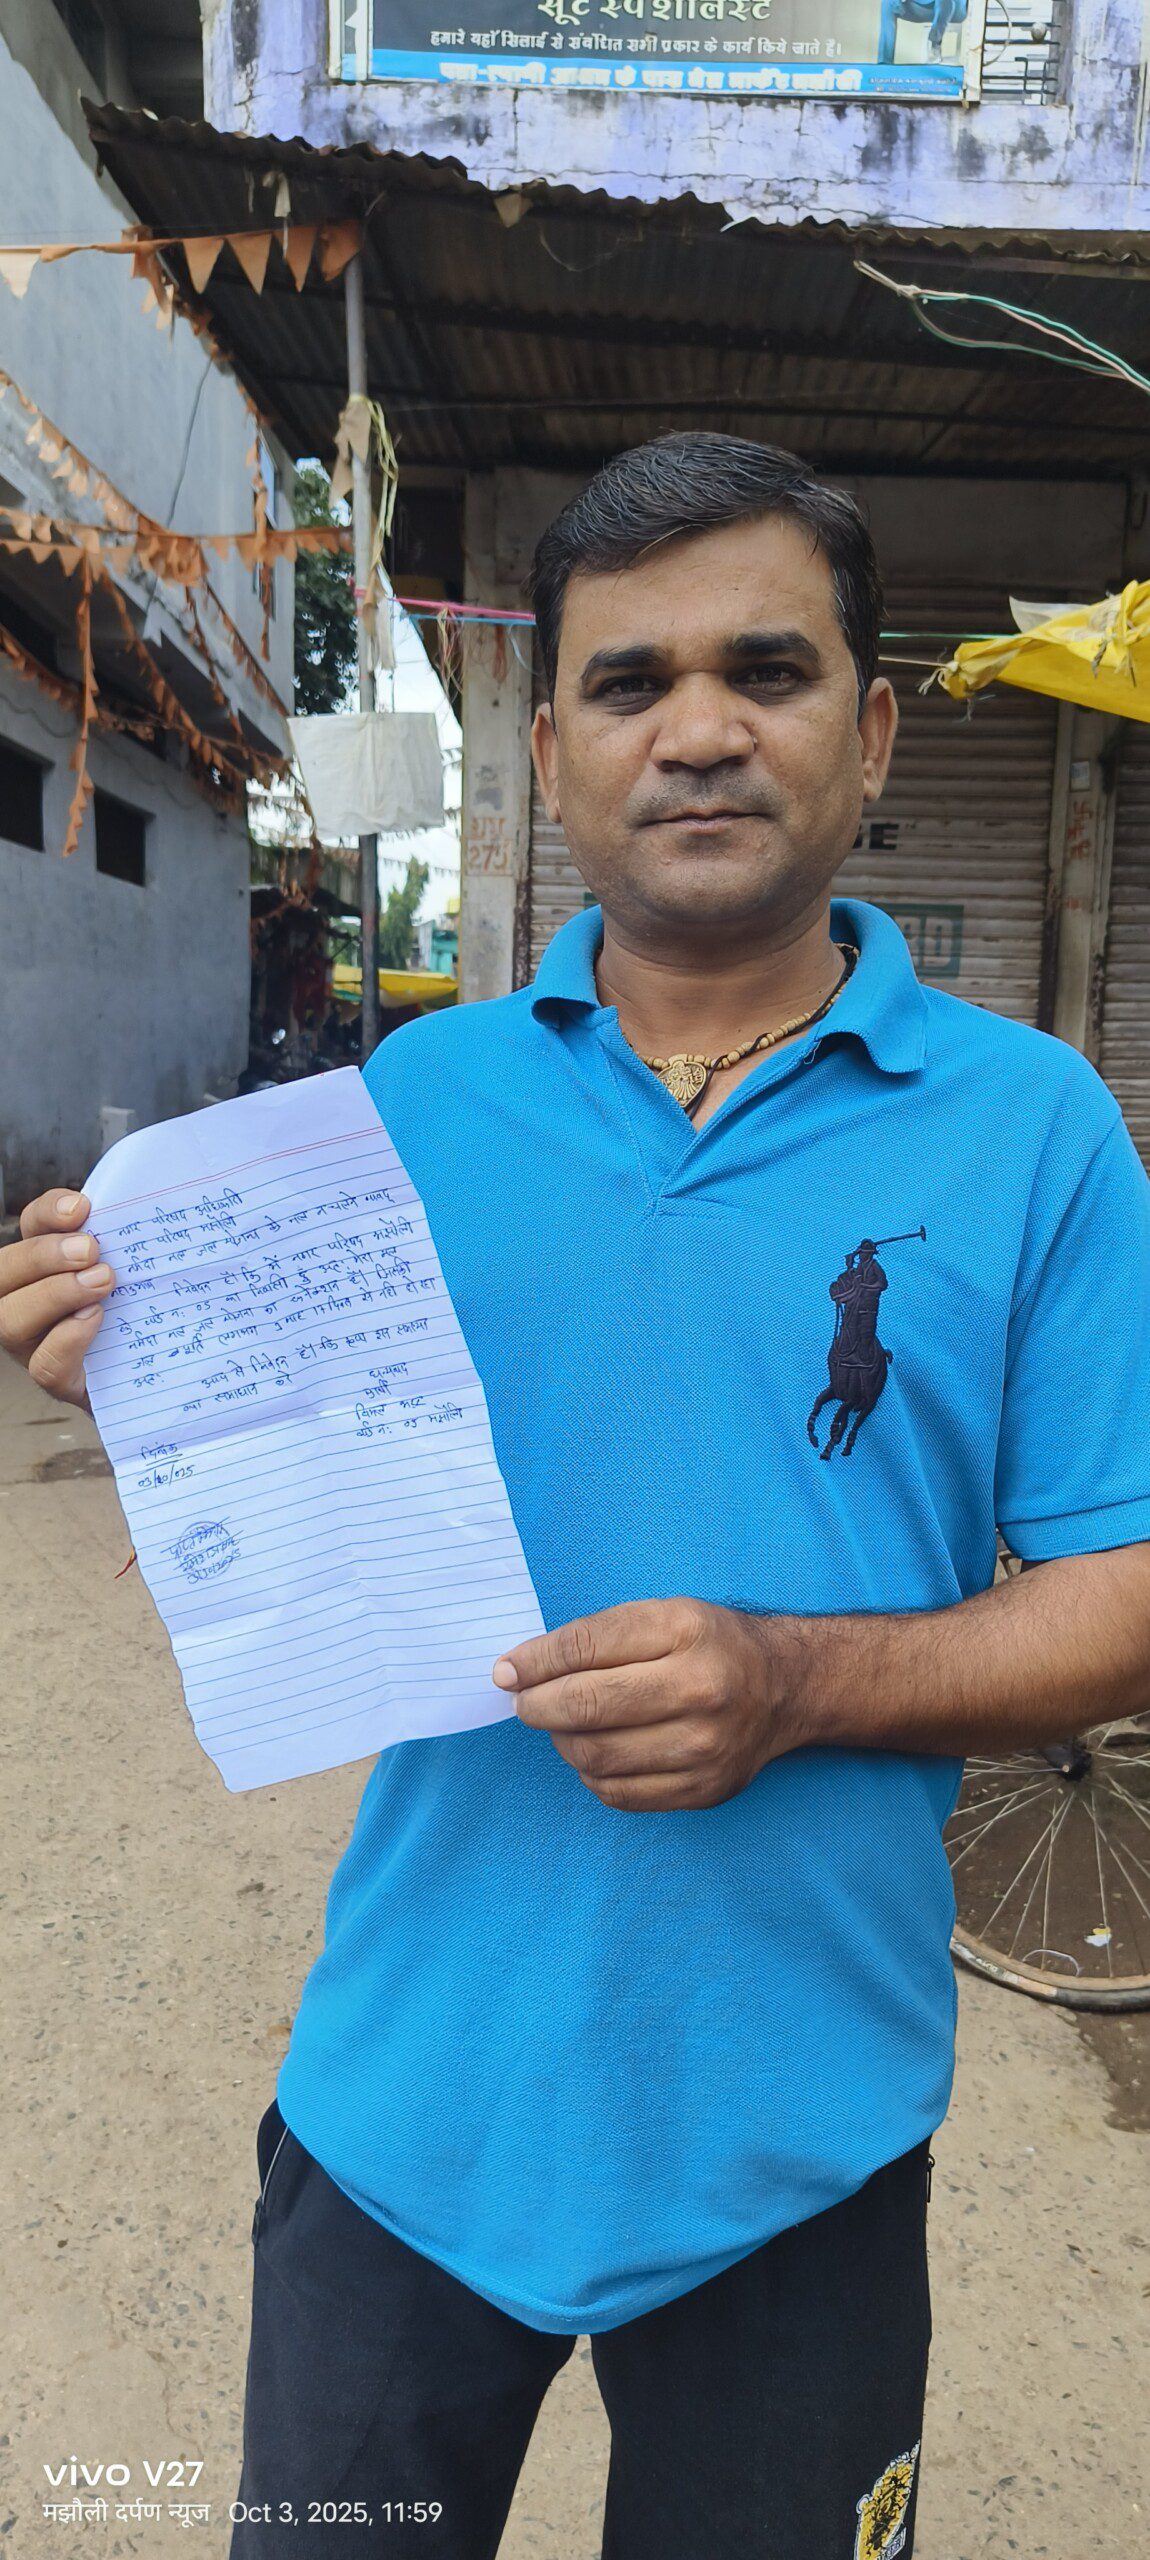 सूट स्पेशलिस्ट
हमारे यहाँ सिलाई से संबंधित सभी प्रकार के कार्य किये जाते हैं।
के पास
GE
275
नगर परिषद अधिकारी
नगर परिषद मझौली
नर्मदा नल जल योजना के नल न चलने बाबद
महानुभाव निवेदन है कि मैं नगर परिषद मझौली
के वार्ड न: 05 का निवासी हूँ अत: मेरा नल
नर्मदा नल जल योजना का कनेक्शन है। जिसकी
जल 17 दिन से नही हो रहा
अत: आप से निवेदन है कि कृपा इस समस्या
का समाधान करे
धन्यवाद
प्रार्थी
वार्ड न: 05 मझौली
दिनांक
03/10/025
vivo V27
मझौली दर्पण न्यूज Oct 3, 2025, 11:59